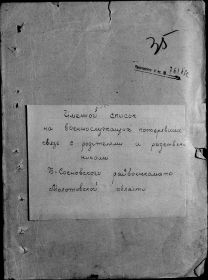 35
Именной список
на военнослужащих потерявших
связь с родителями и родствен
никами
Б-Сосновского райвоенкомата
Молотовской области